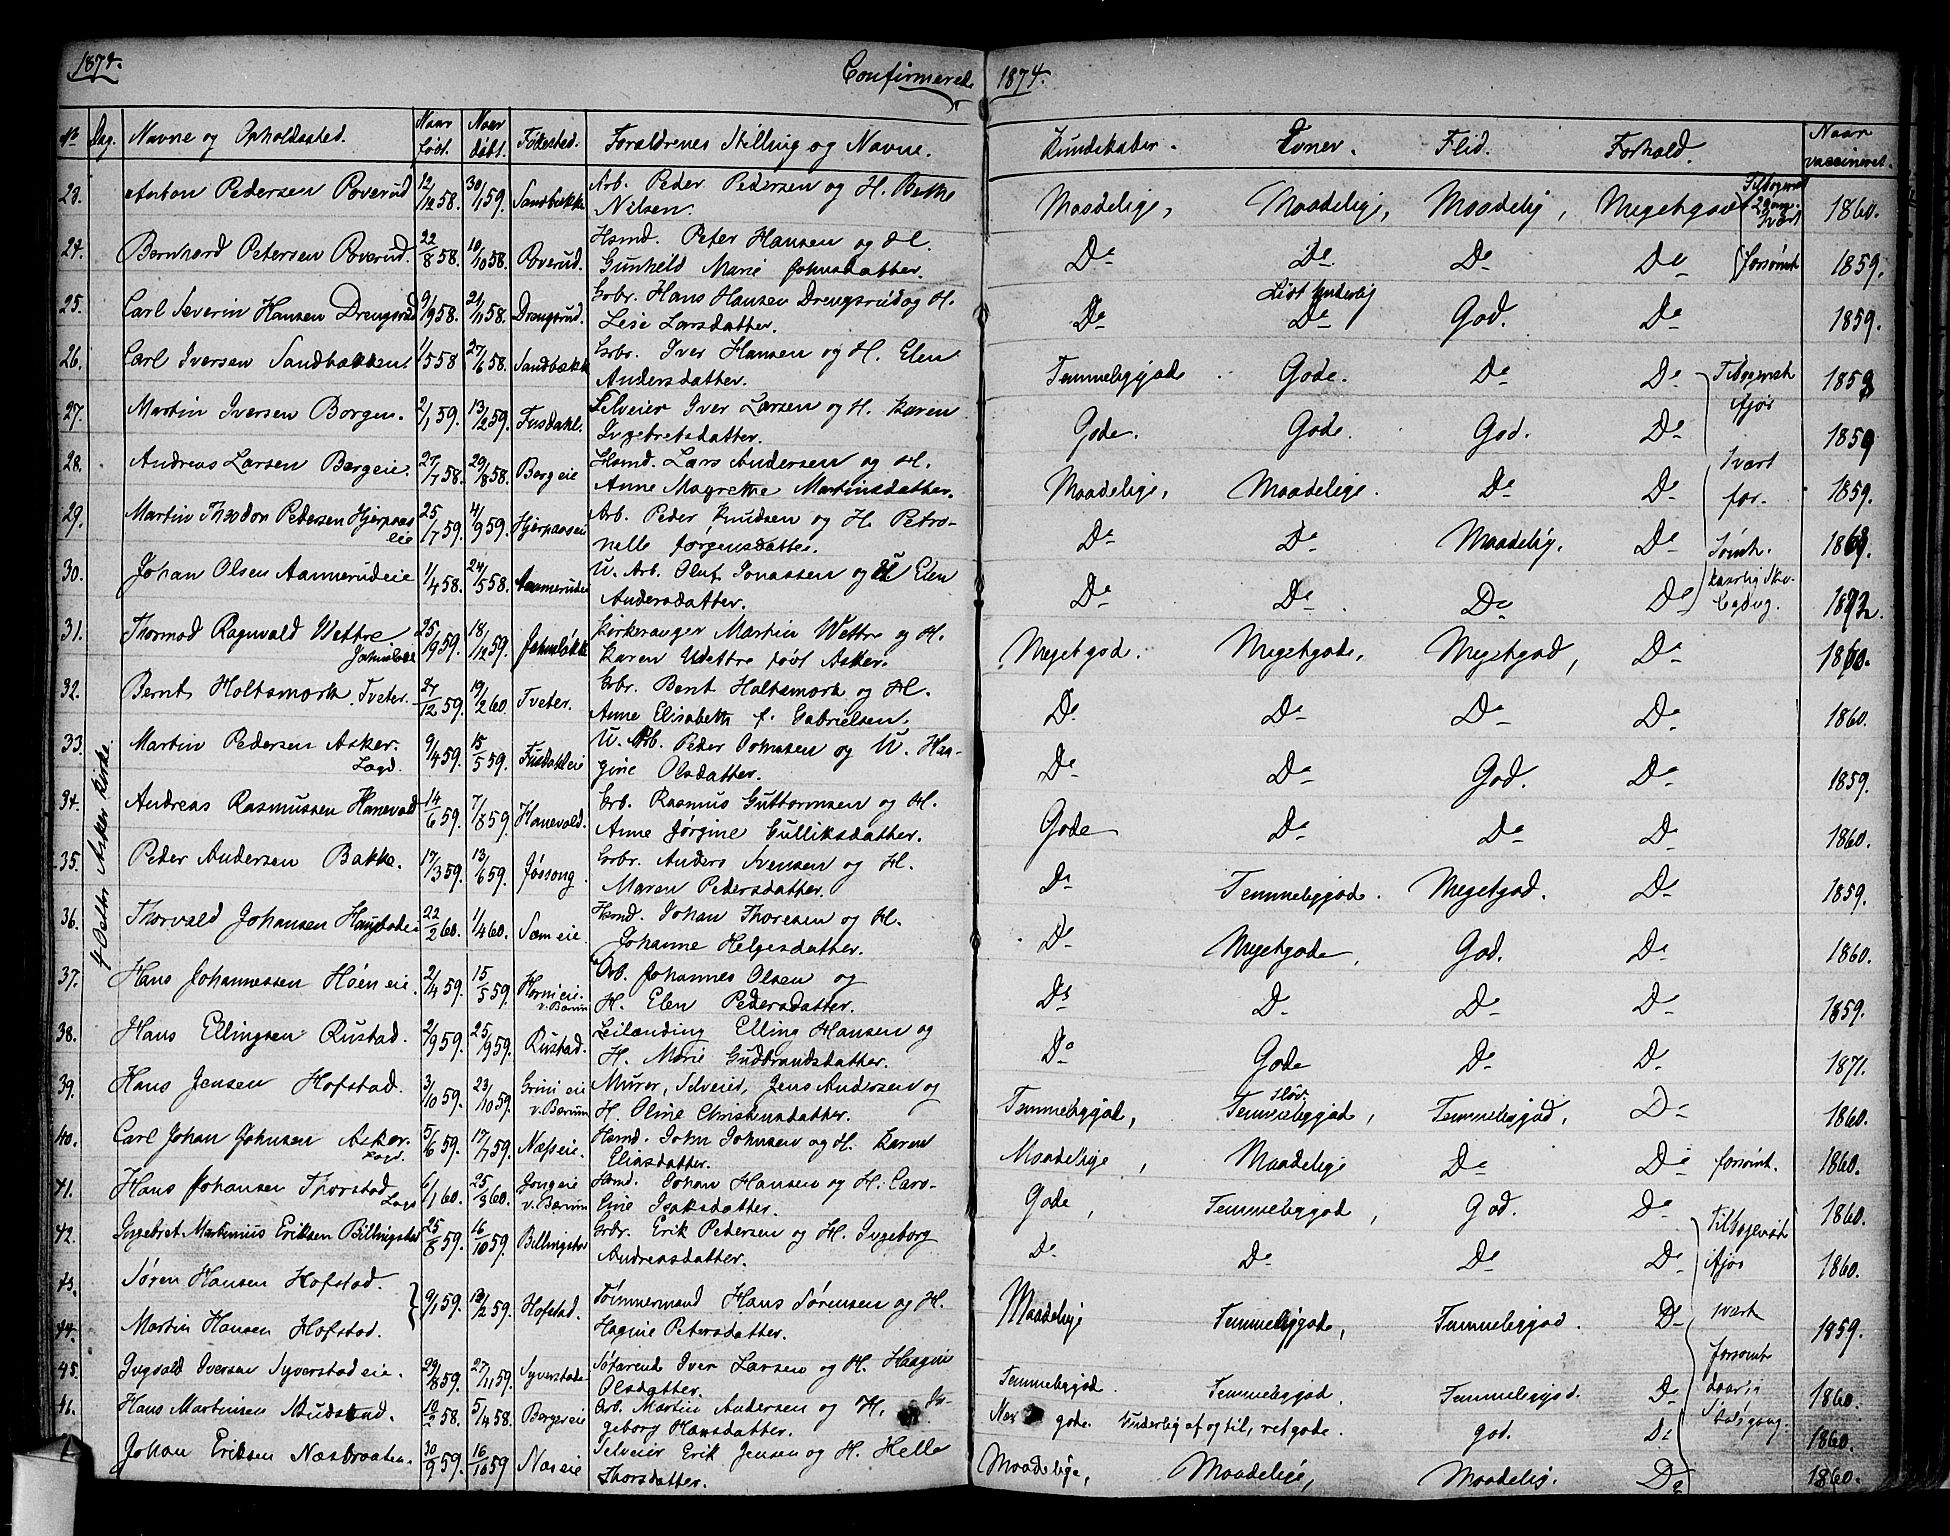 1874. Confirmerede 1874.
No Dag. Navne og Opholdssted. Naar født. Naar døbt. Fødested. Forældrenes Stilling og Navne. Kundskaber. Evner. Flid. Forhold. Naar vaccineret.
23. Anton Pedersen Poverud 12/12 58. 30/1 59. Sandbækken Arb. Peder Pedersen og H. Bethe
Nilsen. Maadelige, Maadelige, Maadelig, Megetgodt 1860.
24. Bernhard Petersen Poverud. 22/8 58. 10/10 58. Poverud. Hsmd. Peter Hansen og H.
Gunhild Marie Johnsdatter. Do Do Do Do forsømt 1859.
25. Carl Severin Hansen Drengsrud 9/9 58. 21/11 58. Drengsrud. Gbr. Hans Hansen Drengsrud og H.
Lise Larsdatter. Do Lidt underlig Do God. Do 1859.
26. Carl Iversen Sandbækken 1/5 58 27/6 58. Sandbækk Gbr. Iver Hansen og H. Elen
Andersdatter. Temmeliggode Gode. Do Do 1859
27. Martin Iversen Borgen. 2/1 59. 13/2 59. Fusdahl. Selveier Iver Larsen og H. Karen
Ingebretsdatter. Gode. Gode. God. Do 1859
28. Andreas Larsen Borgeie. 27/7 58. 29/8 58. Borgeie Hsmd. Lars Andersen og H.
Anne Magrethe Martinsdatter. Maadelige, Maadelige. Do Do 1859.
29. Martin Theodor Pedersen Hjerpaas
eie 25/7 59. 4/9 59. Hjerpaaseie Arb. Peder Knudsen og H. Petro-
nelle Jørgensdatter. Do Do Maadelig. Do
30. Johan Olsen Aamerudeie 1/4 58. 24/5 58. Aamerudeie U. Arb. Oluf Jonassen og U Elen
Andersdatter. Do Do Do Do
31. Thormod Ragnvald Wettre 25/9 59. 18/12 59. Kirkesanger Martin Wettre og H.
Karen Wettre født Asker. Megetgod. Megetgode, Megetgod, Do
32. Bernt Holtsmork Tveter. 27/12 59. 19/2 60. Tveter. Gbr. Bent Holtsmork og H.
Anne Elisabeth f. Gabrielsen. Do Do Do Do 1860.
33. Martin Pedersen Asker.
Logd. 9/4 59. 15/5 59. Fusdahleie U. Arb. Peder Johnsen og U. Haa-
gine Olsdatter. Do Do God. Do 1859.
34. Andreas Rasmussen Hanevold 14/6 59. 7/8 59. Hanevold. Gbr. Rasmus Guttormsen og H.
Anne Jørgine Gulliksdatter. Gode Do Do Do 1860.
35. Peder Andersen Bakke. 17/3 59. 13/6 59. Jøssong. Gbr. Anders Svensen og H.
Maren Pedersdatter. Do Temmeliggode. Megetgod. Do 1859.
36. Thorvald Johansen Haugbroeie 22/2 60. 1/4 60. Sem eie. Hsmd. Johan Thoresen og H.
Johanne Helgesdatter. Do Megetgode, God. Do 1860.
37. Hans Johannessen Høeneie. 2/4 59. 15/5 59. Hornieie. v. Bærum Arb. Johannes Olsen og
H. Elen Pedersdatter. Do Do Do Do 1859.
38. Hans Ellingsen Rustad. 2/9 59. 25/9 59. Rustad. Leilænding Elling Hansen og
H. Marie Gudbrandsdatter. Do Gode Do Do 1871.
39. Hans Jensen Hofstad. 3/10 59. 23/10 59. Grinieie v. Bærum Murer, Selveier, Jens Andersen og
H. Oline Christensdatter. Temmeliggod, Sløv. Temmeliggode, Temmeliggod, Do 1860.
40. Carl Johan Johnsen Asker.
Logd. 5/6 59. 17/7 59. Næsseie. Hsmd. John Johnsen og H. Karen
Eliasdatter. Maadelige, Maadelige Do Do forsømt. 1860.
41. Hans Johansen Thorstad
Logd 6/1 60. 25/3 60. Jongeie v. Bærum Hsmd. Johan Hansen og H. Caro-
line Isaksdatter. Gode, Temmeliggod, God. Do 1860.
42. Ingebret Martinius Eriksen Billingstad 25/8 59. 16/10 59. Billingstad Gbr. Erik Pedersen og H. Ingeborg
Andreasdatter. Do Do Do Do 1860.
43. Søren Hansen Hofstad. 9/1 59. 13/2 59. Hofstad. Tømmermand Hans Sørensen og H.
44. Martin Hansen Hofstad. Hagine Petersdatter. Maadelige Temmeliggode, Temmeliggod. Do 1859.
45. Ingvald Iversen Syverstadeie. 29/8 59. 27/11 59. Syverstade Søfarend Iver Larsen og H. Haagine
Olsdatter. Temmeliggod. Temmeliggod. Temmeliggod. Do 1860.
46. Hans Martinsen Mudsund. 10/2 58. 5/4 58. Borgereie Arb. Martin Andersen og H. In-
geborg Hansdatter. gode. Underlig af og til, ret gode. god. Do 1860.
Johan Eriksen Næsbraaten. 30/9 59. 16/10 59 Næseie Selveier Erik Jensen og H. Helle
Thorsdatter. Maadelige, Maadelige, Maadelig. Do 1860.
Tilbøgerent
Ajør
svært
for-
sømt.
Tilbøgerent
Ajør
svært
forsømt
daarlig
Skolegang.
f. Octbr Asker Kirke.